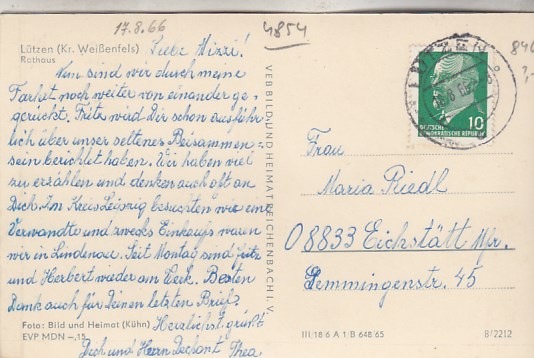 17.8.66
4854
Lützen (Kr. Weißenfels)
Rathaus
Liebe Mizzi!
Nun sind wir durch meine
Fahrt noch weiter von einander ge-
gerückt. Fritz wird Dir schon ausführ-
lich über unser seltenes Beisammen-
sein berichtet haben. Wir haben viel
zu erzählen und denken auch oft an
Dich. Im Kreis Leipzig besuchten wir eine
Verwandte und zwecks Einkaufs waren
wir in Lindenau. Seit Montag sind Fritz
und Herbert wieder am Werk. Besten
Dank auch für Deinen letzten Brief!
Herzlichst grüßt
Dich und Herrn Dechant Thea
Foto: Bild und Heimat (Kühn)
EVP MDN –,15
VEB BILD UND HEIMAT REICHENBACH I. V.
LÜTZEN
10
DEUTSCHE
DEMOKRATISCHE REPUBLIK
Frau
Maria Riedl
08833 Eichstätt Mfr.
Pemmingenstr. 45
III/18/6 A 1/B 648/65
8/2212